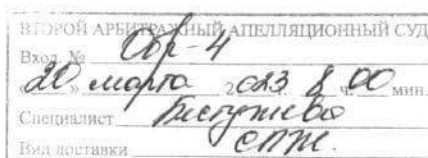 ВТОРОЙ АРБИТРАЖНЫЙ АПЕЛЛЯЦИОННЫЙ СУД
Вход. №
20 » марта 2023 г. 8 ч. 00 мин.
Специалист
Вид доставки